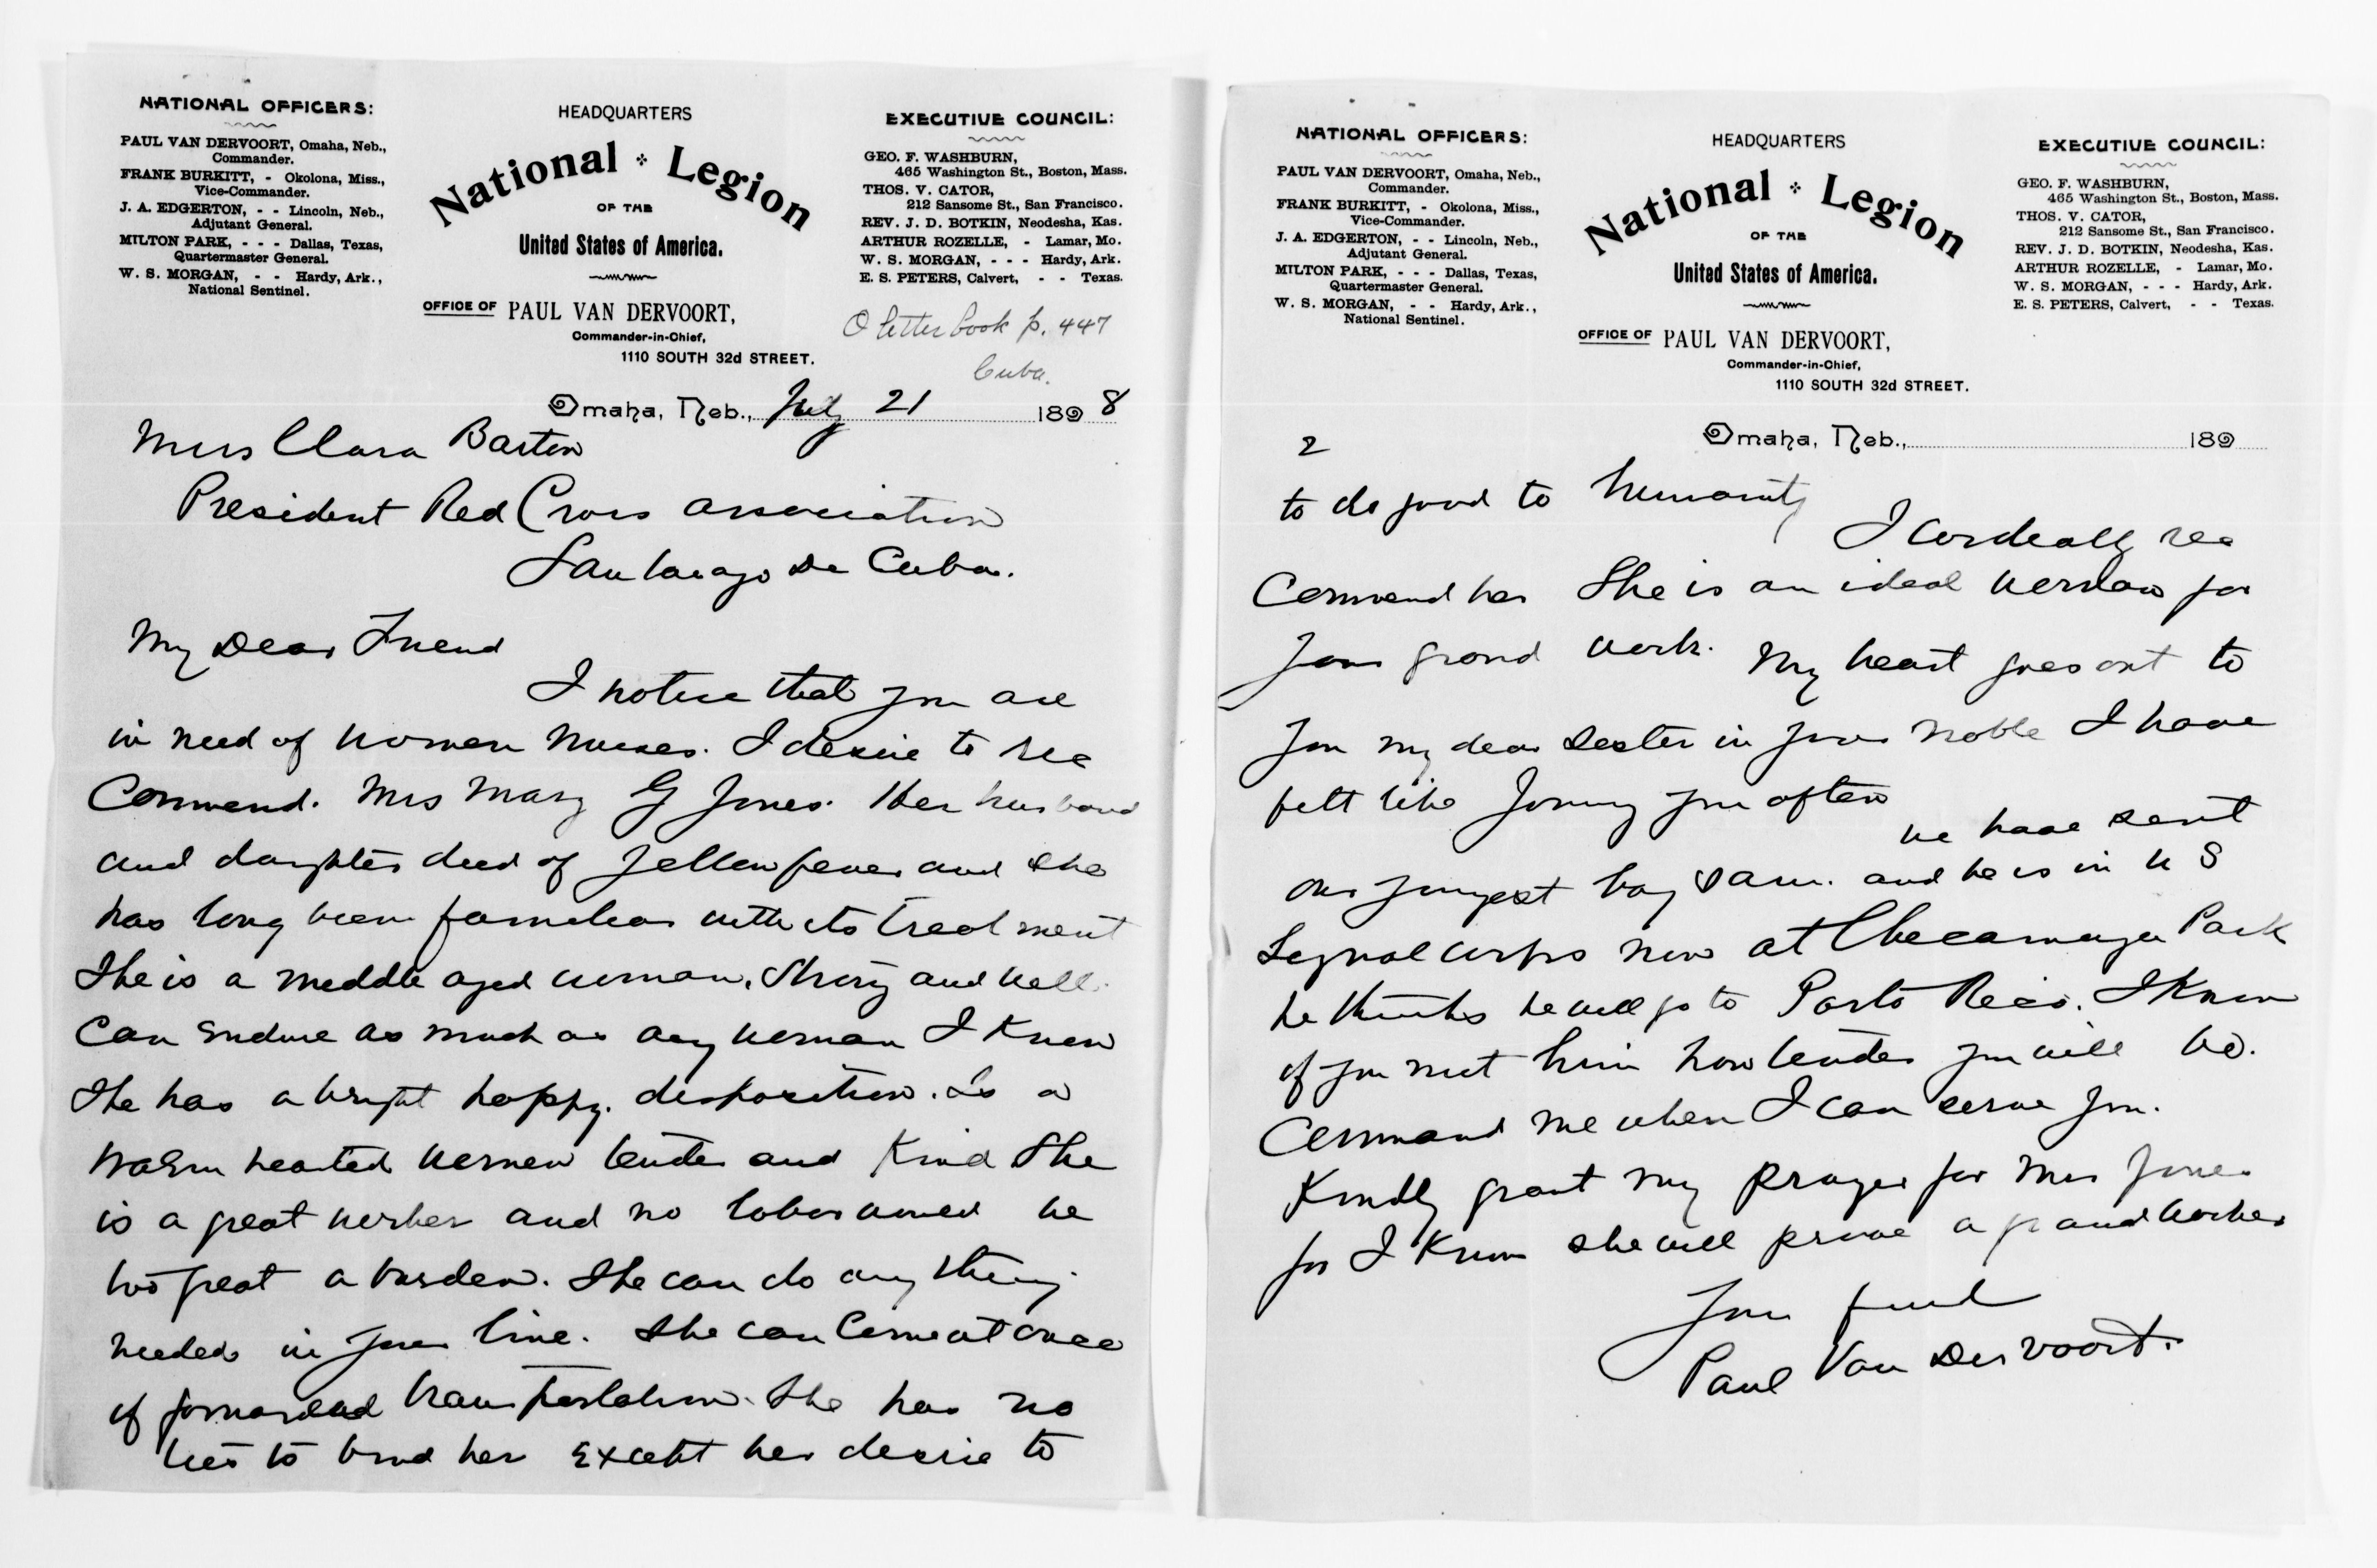 NATIONAL OFFICERS:
PAUL VAN DERVOORT, Omaha, Neb.,
Commander.
FRANK BURKITT, - Okolona, Miss.,
Vice-Commander.
J. A. EDGERTON, - - Lincoln, Neb.,
Adjutant General.
MILTON PARK, - - - Dallas, Texas,
Quartermaster General.
W. S. MORGAN, - - Hardy, Ark.,
National Sentinel.
HEADQUARTERS
National Legion
OF THE
United States of America.
OFFICE OF PAUL VAN DERVOORT,
Commander-in-Chief,
1110 SOUTH 32d STREET.
EXECUTIVE COUNCIL:
GEO. F. WASHBURN,
465 Washington St., Boston, Mass.
THOS. V. CATOR,
212 Sansome St., San Francisco.
REV. J. D. BOTKIN, Neodesha, Kas.
ARTHUR ROZELLE, - Lamar, Mo.
W. S. MORGAN, - - - Hardy, Ark.
E. S. PETERS, Calvert, - - Texas.
letter book p. 447
Cuba.
Omaha, Neb., July 21 1898
Miss Clara Barton
President Red Cross Association
Santiago De Cuba.
My Dear Friend
I notice that you are
in need of women nurses. I desire to rec
Commend. Mrs Mary G Jones. Her husband
and daughter died of yellow fever and she
has long been familiar with its treatment
She is a middle aged woman, strong and well.
Can endure as much as any woman I know
She has a bright happy. disposition. Is a
warm hearted women tender and Kind She
is a great worker and no labor would be
too great a burden. She can do any thing
needed in your line. She can Come at once
if forwarded transportation. She has no
ties to bind her except her desire to
NATIONAL OFFICERS:
PAUL VAN DERVOORT, Omaha, Neb.,
Commander.
FRANK BURKITT, - Okolona, Miss.,
Vice-Commander.
J. A. EDGERTON, - - Lincoln, Neb.,
Adjutant General.
MILTON PARK, - - - Dallas, Texas,
Quartermaster General.
W. S. MORGAN, - - Hardy, Ark.,
National Sentinel.
HEADQUARTERS
National Legion
OF THE
United States of America.
OFFICE OF PAUL VAN DERVOORT,
Commander-in-Chief,
1110 SOUTH 32d STREET.
EXECUTIVE COUNCIL:
GEO. F. WASHBURN,
465 Washington St., Boston, Mass.
THOS. V. CATOR,
212 Sansome St., San Francisco.
REV. J. D. BOTKIN, Neodesha, Kas.
ARTHUR ROZELLE, - Lamar, Mo.
W. S. MORGAN, - - - Hardy, Ark.
E. S. PETERS, Calvert, - - Texas.
Omaha, Neb., 189
2
to do good to humanity
I cordially rec
Commend her She is an ideal woman for
your grand work. My heart goes out to
you my dear sister in your noble I have
felt like joining you often
we have sent
our youngest boy Sam. and he is in U S
Signal corps now at Checamauga Park
he thinks he will go to Porto Rico. I know
if you meet him how tender you will be.
Command me when I can serve you.
Kindly grant my prayer for Mrs Jones
for I know she will prove a grand worker
Your friend
Paul Van Der Voort.